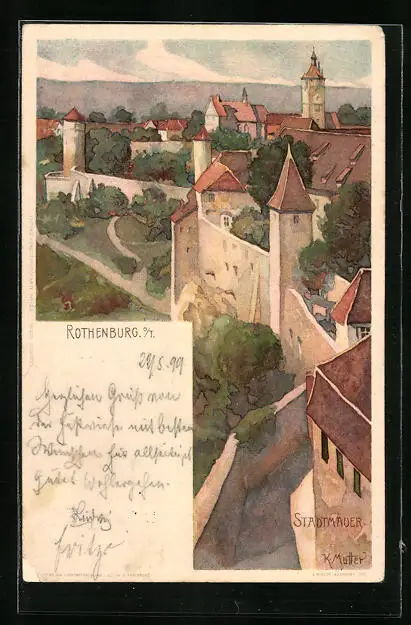 ROTHENBURG. O/T.
29/5.99
Herzlichen Gruß von
der Festwiese mit besten
Wünschen für allseitiges
gutes Wohlergehen.
Fritz
STADTMAUER.
K. Mutter